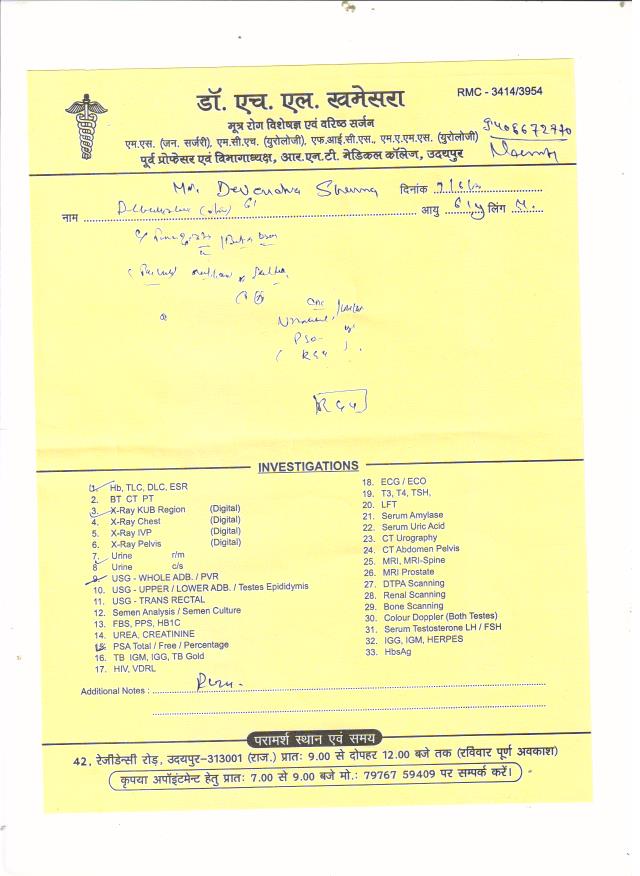 डॉ. एच. एल. खमेसरा
RMC - 3414/3954
मूत्र रोग विशेषज्ञ एवं वरिष्ठ सर्जन
एम.एस. (जन. सर्जरी), एम.सी.एच. (युरोलोजी), एफ.आई.सी.एस., एम.ए.एम.एस. (युरोलोजी)
पूर्व प्रोफेसर एवं विभागाध्यक्ष, आर.एन.टी. मेडिकल कॉलेज, उदयपुर
9406672770
Mr. Devendra Sharma दिनांक
नाम आयु 61y लिंग M.
PSA-
INVESTIGATIONS
1. Hb, TLC, DLC, ESR
2. BT CT PT
3. X-Ray KUB Region (Digital)
4. X-Ray Chest (Digital)
5. X-Ray IVP (Digital)
6. X-Ray Pelvis (Digital)
7. Urine r/m
8 Urine c/s
9. USG - WHOLE ADB. / PVR
10. USG - UPPER / LOWER ADB. / Testes Epididymis
11. USG - TRANS RECTAL
12. Semen Analysis / Semen Culture
13. FBS, PPS, HB1C
14. UREA, CREATININE
15. PSA Total / Free / Percentage
16. TB IGM, IGG, TB Gold
17. HIV, VDRL
18. ECG / ECO
19. T3, T4, TSH,
20. LFT
21. Serum Amylase
22. Serum Uric Acid
23. CT Urography
24. CT Abdomen Pelvis
25. MRI, MRI-Spine
26. MRI Prostate
27. DTPA Scanning
28. Renal Scanning
29. Bone Scanning
30. Colour Doppler (Both Testes)
31. Serum Testosterone LH / FSH
32. IGG, IGM, HERPES
33. HbsAg
Additional Notes :
परामर्श स्थान एवं समय
42, रेजीडेन्सी रोड़, उदयपुर-313001 (राज.) प्रातः 9.00 से दोपहर 12.00 बजे तक (रविवार पूर्ण अवकाश)
कृपया अपॉइंटमेन्ट हेतु प्रातः 7.00 से 9.00 बजे मो.: 79767 59409 पर सम्पर्क करें।